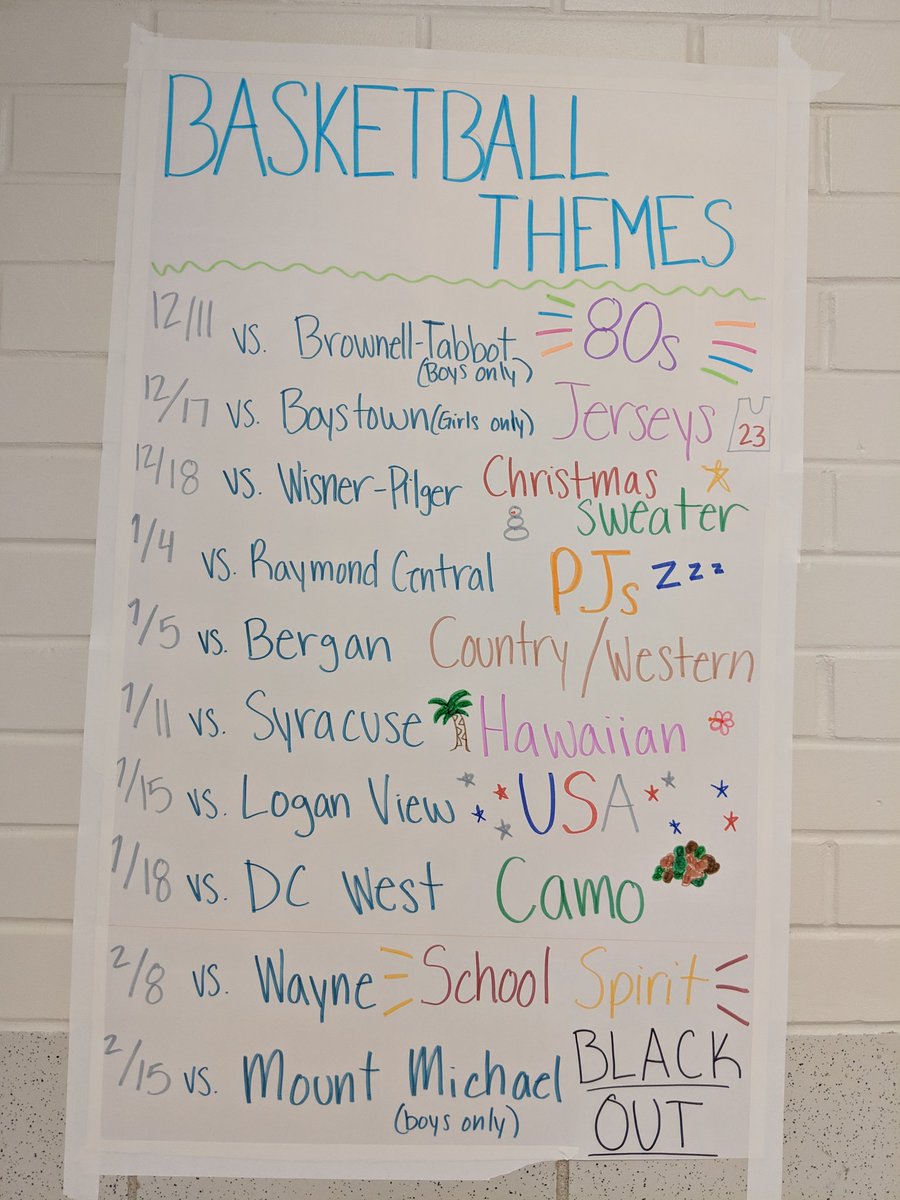 BASKETBALL
THEMES
12/11 vs. Brownell-Tabbot 80s
(Boys only)
12/17 vs. Boystown (Girls only) Jerseys 23
12/18 vs. Wisner-Pilger Christmas
sweater
1/4 vs. Raymond Central PJs z z z
1/5 vs. Bergan Country/Western
1/11 vs. Syracuse Hawaiian
1/15 vs. Logan View USA
1/18 vs. DC West Camo
2/8 vs. Wayne School Spirit
2/15 vs. Mount Michael BLACK
(boys only) OUT